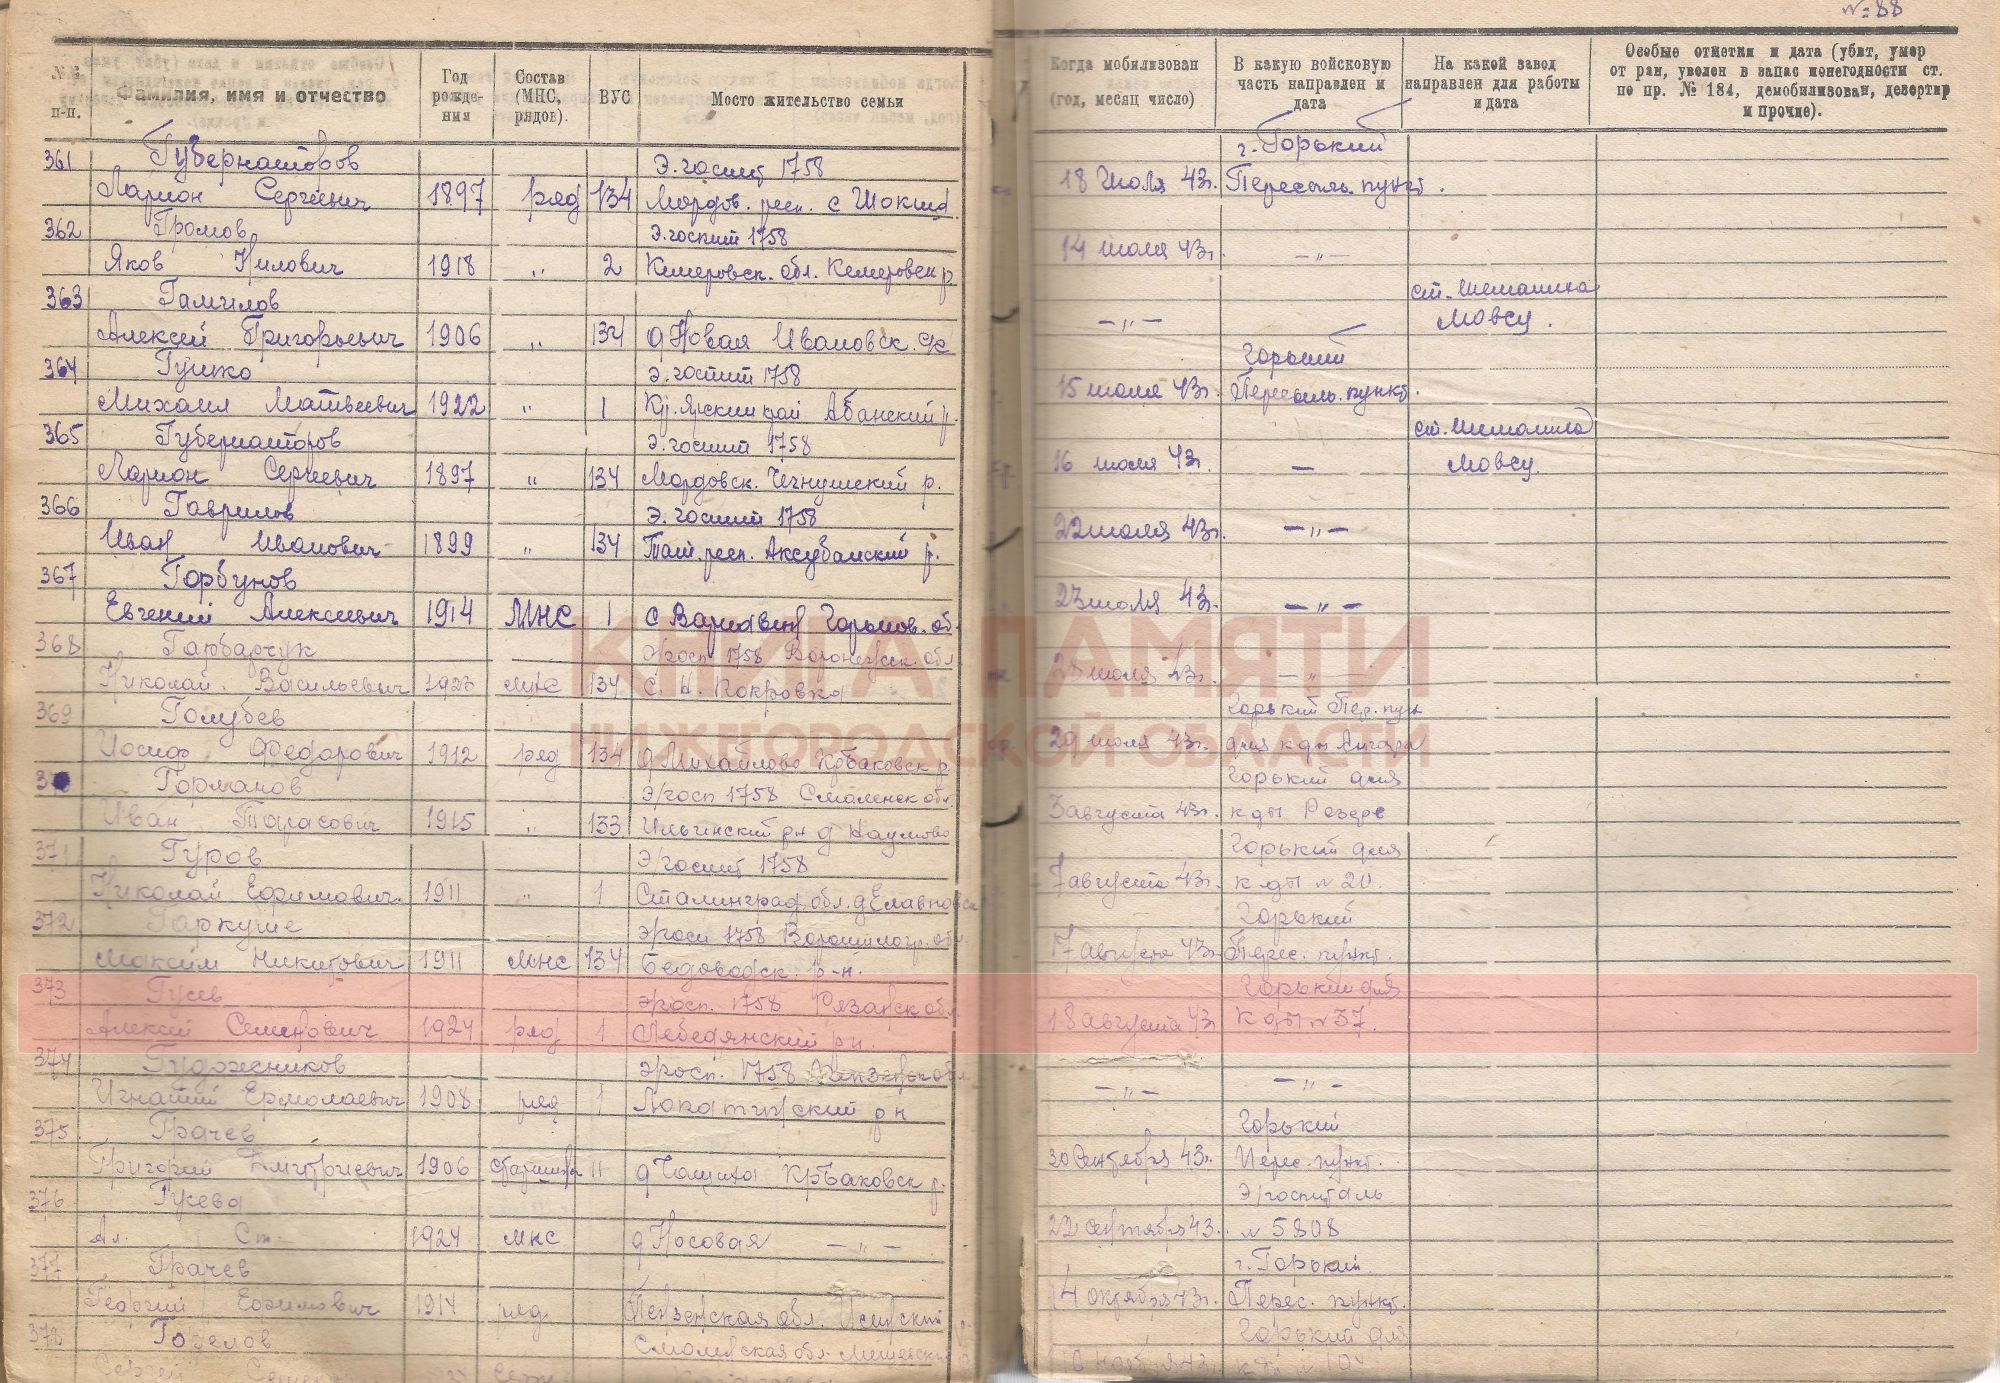 № 88
№№ п-п.
Фамилия, имя и отчество
Год рожде-ния
Состав (МНС, рядов).
ВУС
Мосто жительство семьи
Когда мобилизован (год, месяц число)
В какую войсковую часть направлен и дата
На какой завод направлен для работы и дата
Особые отметки и дата (убит, умер от ран, уволен в запас по негодности ст. по пр. № 184, демобилизован, дезертир и прочие).
361 Губернаторов Э. госпит 1758 г. Горький
Ларион Сергеевич 1897 ряд 134 Мордов. респ. с Шокша. 18 июля 43г. Пересыль. пункт.
362 Громов Э. госпит 1758
Яков Нилович 1918 „ 2 Кемеровск. обл. Кемеровск р. 14 июля 43г. — „ —
363 Гамилов ст. Шеманиха
Алексей Григорьевич 1906 „ 134 д Новая Ивановск. — „ — Мовсу.
364 Гушко Э. госпит 1758 Горький
Михаил Матвеевич 1922 „ 1 Кр. ярский край Абанский р. 15 июля 43г. Пересыль. пункт.
365 Губернаторов Э. госпит 1758 ст. Шеманиха
Ларион Сергеевич 1897 „ 134 Мордовск. р. 16 июля 43г. — Мовсу.
366 Гаврилов Э. госпит 1758
Иван Иванович 1899 „ 134 Тат. респ. Аксубаевский р. 22 июля 43г. — „ —
367 Горбунов
Евгений Алексеевич 1914 МНС 1 с Варнавин Горьков. об. 23 июля 43г. — „ —
368 Гарбарчук Э/госп 1758 Воронежск. обл
Николай Васильевич 1923 мнс 134 с. Н. Покровка 28 июля 43г. — „ —
369 Голубев Горький Пер. пун
Иосиф Федорович 1912 ряд 134 д Михайлово Кр баковск р 29 июля 43г. для
37 Горманов Э/госп 1758 Смоленск обл. Горький для
Иван Тарасович 1915 „ 133 Ильинский рн д Наумово 3 августа 43г. к дп Резерв
371 Гуров Э/госпит 1758 Горький для
Николай Ефимович. 1911 „ 1 Сталинград. обл. 7 августа 43г. к дп № 20.
372 Гаркуше Э/госп 1758 Ворошиловгр. обл. Горький
Максим Никитович 1911 мнс 134 Бедоводск. р-н. 17 августа 43г. Перес. пункт.
373 Гусев Э/госп. 1758 Рязанск обл. Горький для
Алексей Семенович 1924 ряд 1 Лебедянский рн. 18 августа 43 к дп № 37.
374 Гудожников Э/госп. 1758 Пензенск обл.
Игнатий Ермолаевич 1908 ряд 1 рн — „ — — „ —
375 Грачев Горький
Григорий Дмитриевич 1906 старшина 11 д Чащиха Кр Баковск р. 30 сентября 43г. Перес. пункт.
376 Гусева Э/госпиталь
Ал. Ст. 1924 мнс д Носовая — „ — 22 сентября 43. № 5808
377 Грачев г. Горький
Георгий Ефимович 1914 ряд. Пензенская обл. Исинский 4 октября 43г. Перес. пункт.
378 Горелов Смоленская обл. Горький для
Сергей ноября 43 к дп № 104
КНИГА ПАМЯТИ
НИЖЕГОРОДСКОЙ ОБЛАСТИ